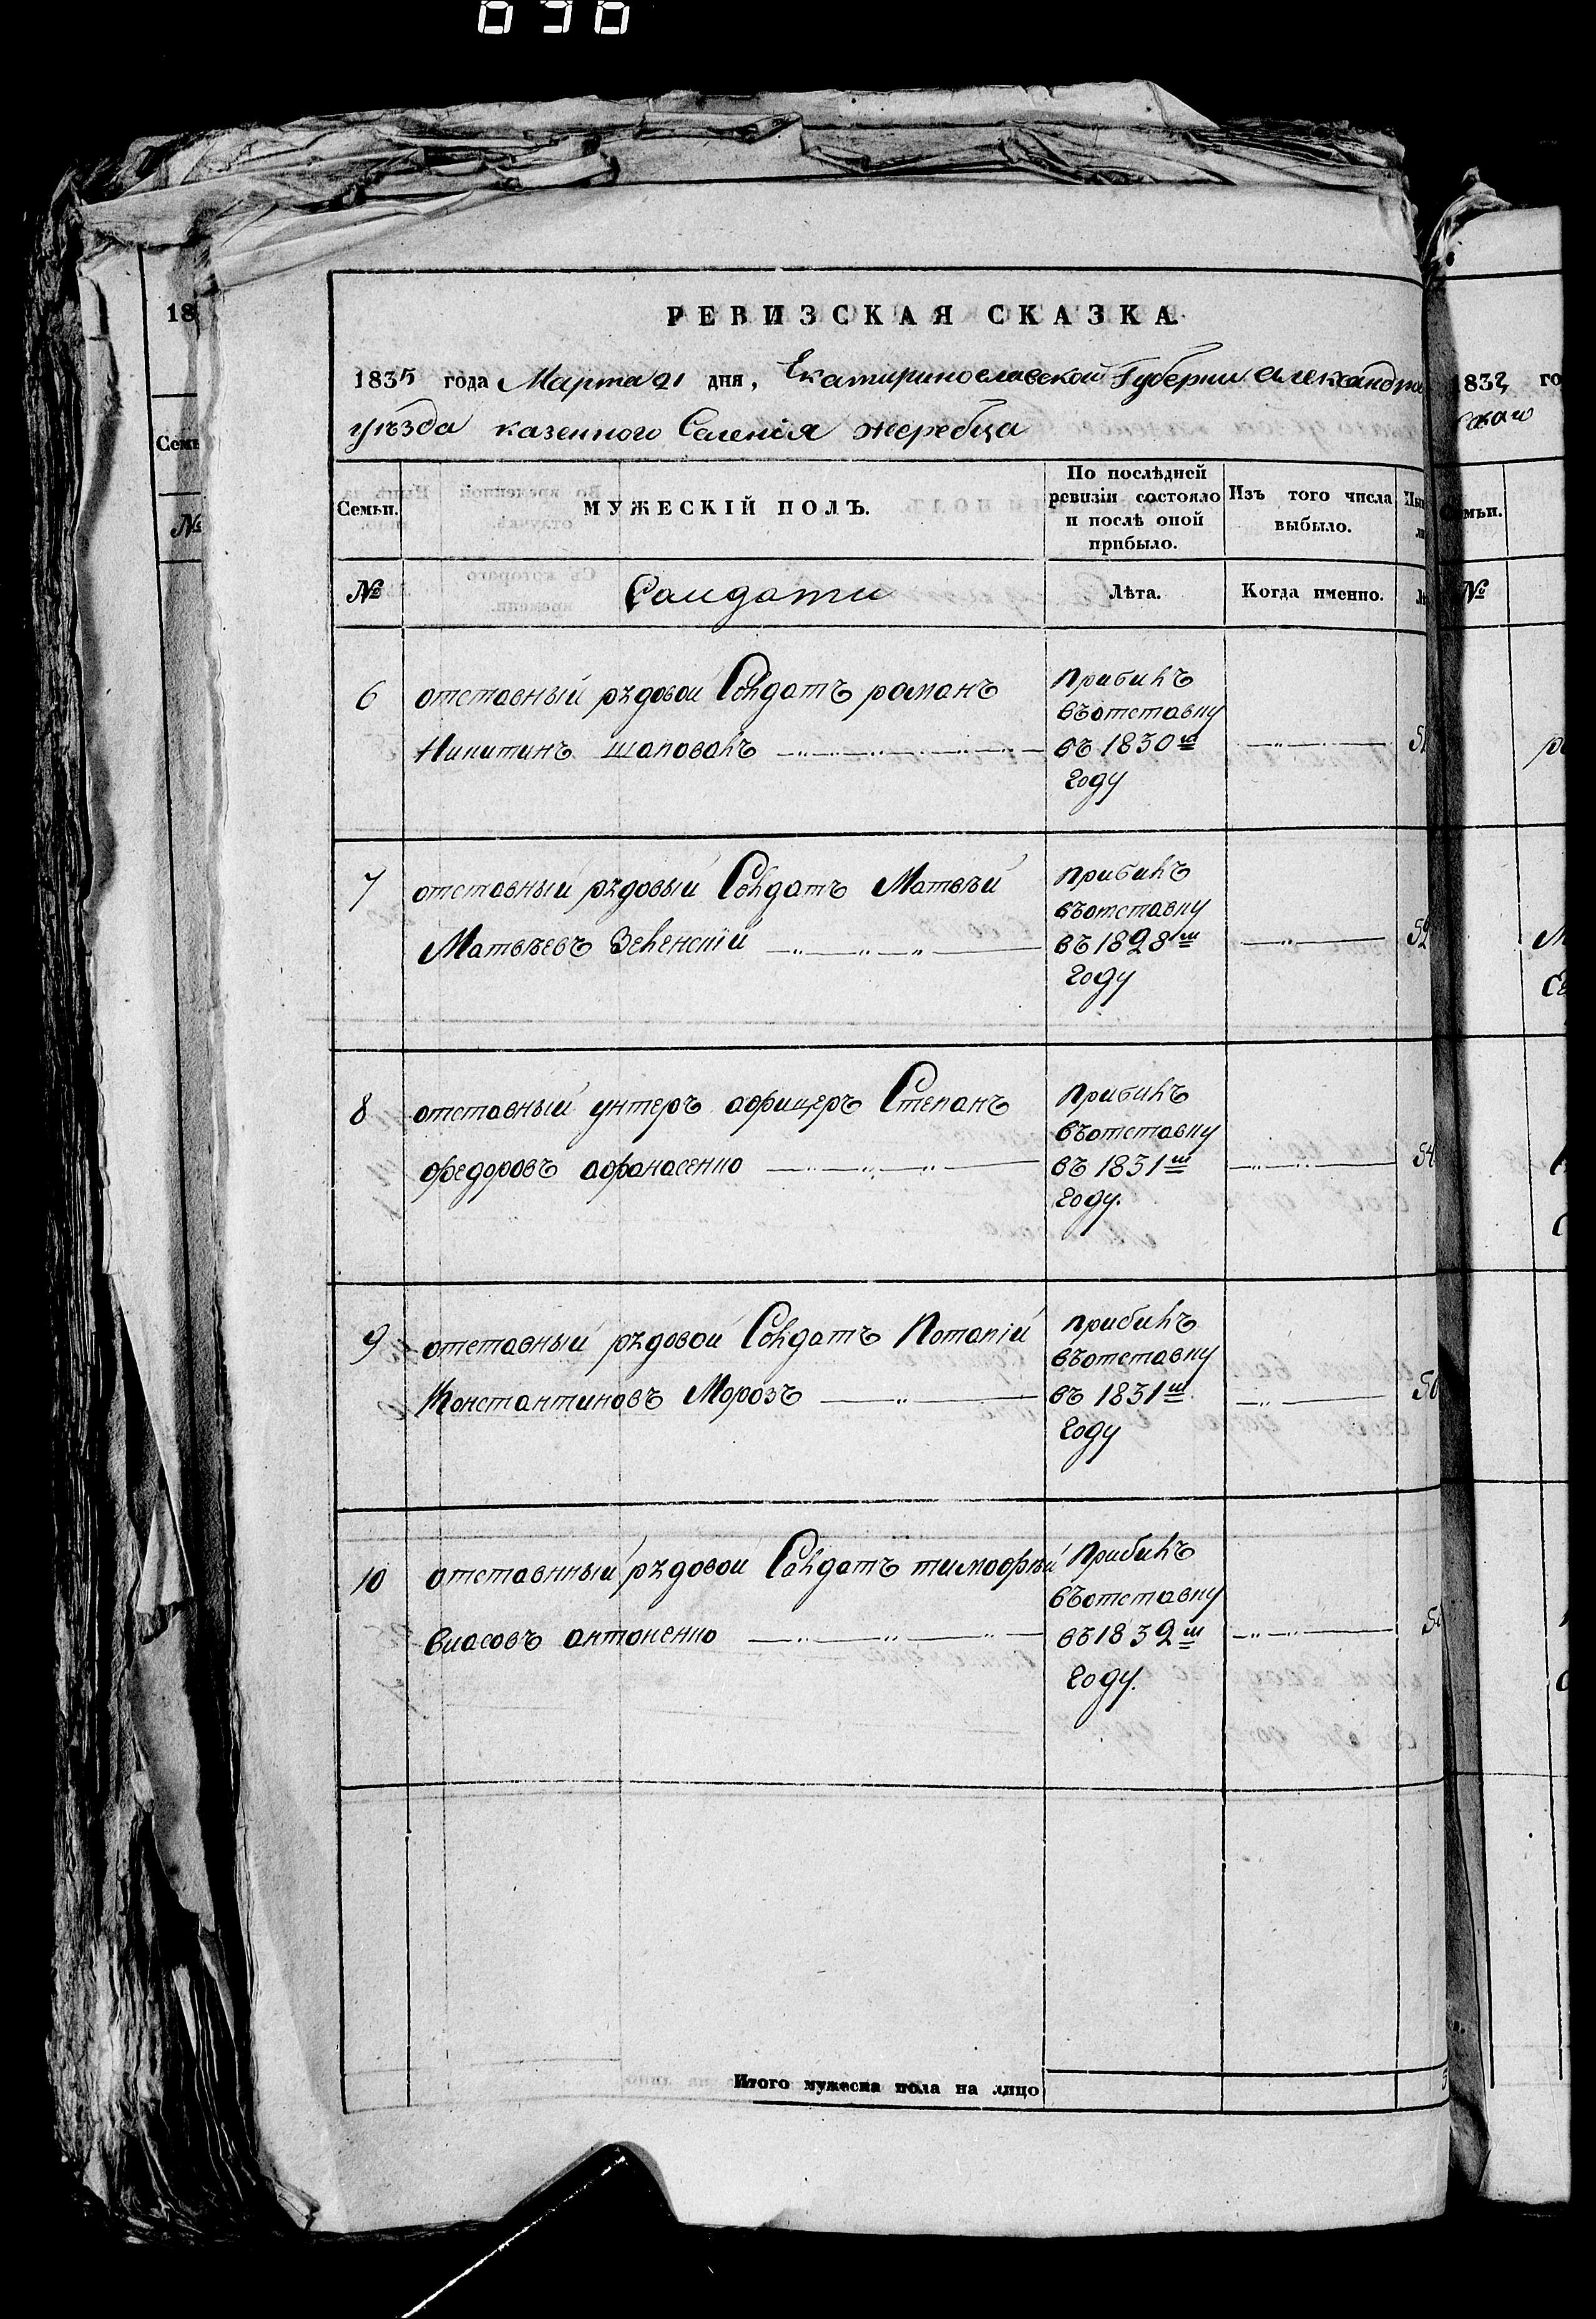 РЕВИЗСКАЯ СКАЗКА.
1835 года Марта 21 дня, Екатиринославской Губернии Александров
уѣзда казенного Селенія жеребца
Семьи.
МУЖЕСКІЙ ПОЛЪ.
По послѣдней ревизіи состояло и послѣ оной прибыло.
Изъ того числа выбыло.
№
Солдати
Лѣта.
Когда именно.
6 отставный рядовой Солдатъ романъ
Никитинъ шаповалъ
прибилъ
въотставку
въ 1830м
году
51
7 отставный рядовый Солдатъ Матвѣй
Матвѣевъ Зеленскій
прибилъ
въотставку
въ 1828м
году
52
8 отставный унтеръ афицеръ Степанъ
федоровъ афанасенко
прибилъ
въотставку
въ 1831м
году.
54
9 отставный рядовой Солдатъ Потапій
Константиновъ Морозъ
прибилъ
въотставку
въ 1831м
году
50
10 отставнный рядовой Солдатъ тимофѣй
власовъ антоненко
прибилъ
въотставку
въ 1832м
году.
Итого мужеска пола на лицо